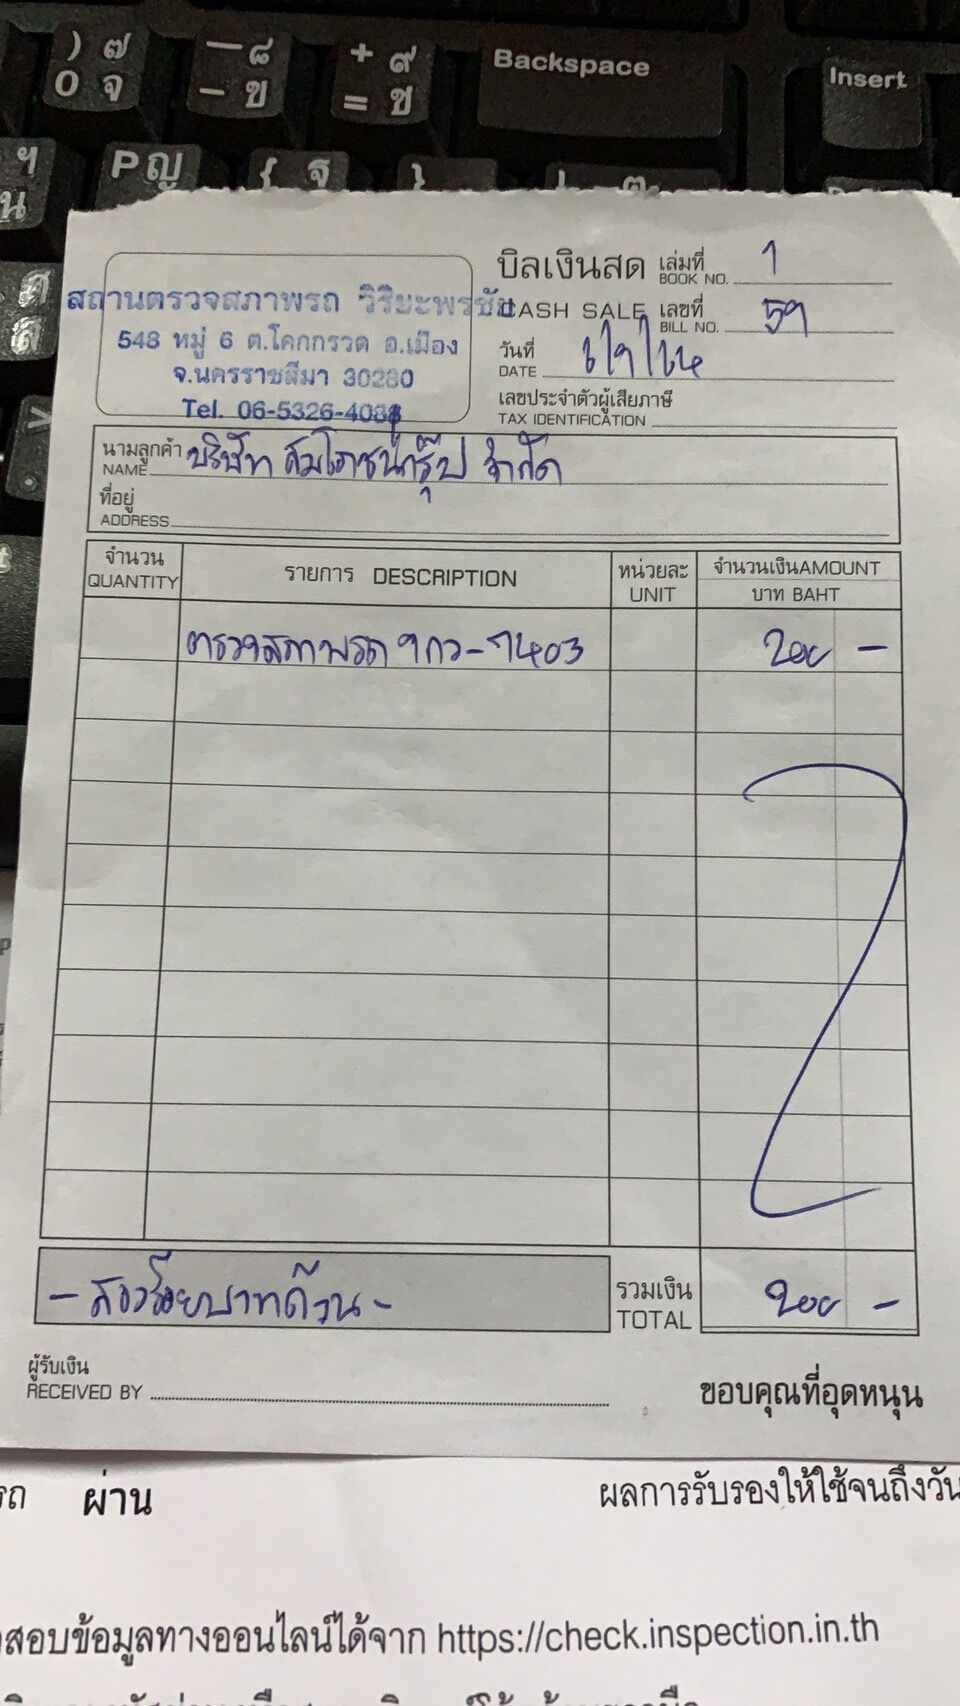 ) ๗
0 จ
— ๘
- ข
+ ๙
= ช
Backspace
Insert
ฯ
น
P ญ
{ ฐ
}
ศ
ส
>
.
บิลเงินสด
CASH SALE
เล่มที่ 1
BOOK NO.
เลขที่ 59
BILL NO.
วันที่
DATE
เลขประจำตัวผู้เสียภาษี
TAX IDENTIFICATION
สถานตรวจสภาพรถ วิริยะพรชัย
548 หมู่ 6 ต.โคกกรวด อ.เมือง
จ.นครราชสีมา 30280
Tel. 06-5326-4084
นามลูกค้า บริษัท สมโภชน์กรุ๊ป จำกัด
NAME
ที่อยู่
ADDRESS
จำนวน รายการ DESCRIPTION หน่วยละ จำนวนเงินAMOUNT
QUANTITY UNIT บาท BAHT
ตรวจสภาพรถ 1กว-7403 200 -
- สองร้อยบาทถ้วน - รวมเงิน 200 -
TOTAL
ผู้รับเงิน
RECEIVED BY
ขอบคุณที่อุดหนุน
รถ ผ่าน ผลการรับรองให้ใช้จนถึงวัน
สอบข้อมูลทางออนไลน์ได้จาก https://check.inspection.in.th